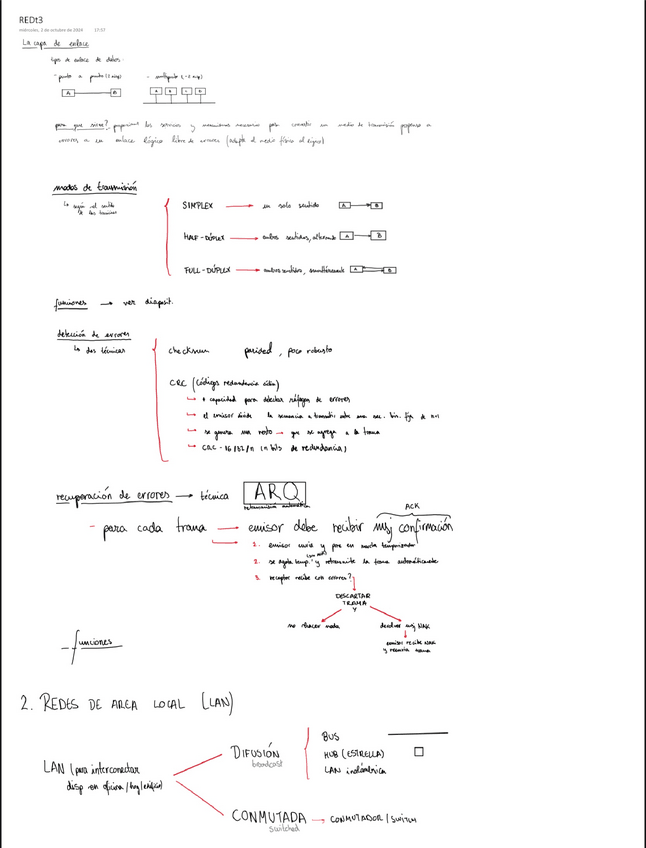 REDt3
miércoles, 2 de octubre de 2024 17:57
La capa de enlace
tipos de enlace de datos:
- punto a punto (2 disp) - multipunto (+2 disp)
A B A B C D
para que sirve? proporcionar los servicios y mecanismos necesarios para convertir un medio de transmisión propenso a
errores a un enlace lógico libre de errores (adapta el medio físico al lógico)
modos de transmisión
según el sentido
de las
SIMPLEX → un solo sentido A B
HALF-DÚPLEX → ambos sentidos, alternando A B
FULL-DÚPLEX → ambos sentidos, simultáneamente A B
funciones → ver diaposit.
detección de errores
dos técnicas
checksum paridad, poco robusto
CRC (códigos redundancia cíclica)
capacidad para detectar ráfagas de errores
el emisor divide la secuencia a transmitir entre una sec. bin. fija de n+1
se genera un resto → que se agrega a la trama
CRC-16/32/n (n bits de redundancia)
recuperación de errores → técnica ARQ
retransmisión automática
ACK
- para cada trama → emisor debe recibir msj confirmación
1. emisor envia y pone en marcha temporizador
2. se agota temp. y retransmite la trama automáticamente
3. receptor recibe con errores?
DESCARTAR
TRAMA
Y
no hacer nada devolver msj NAK
emisor recibe NAK
y reenvia trama
- funciones
2. REDES DE AREA LOCAL (LAN)
LAN (para interconectar
disp en oficina/hog/edificio)
DIFUSIÓN
broadcast
BUS
HUB (ESTRELLA)
LAN inalámbrica
CONMUTADA → CONMUTADOR / SWITCH
switched